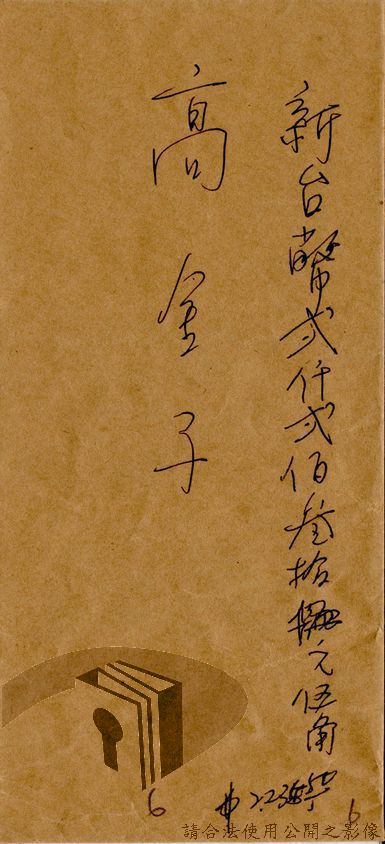 新台幣貳仟貳佰叁拾元伍角
高金子
6
6
請合法使用公開之影像